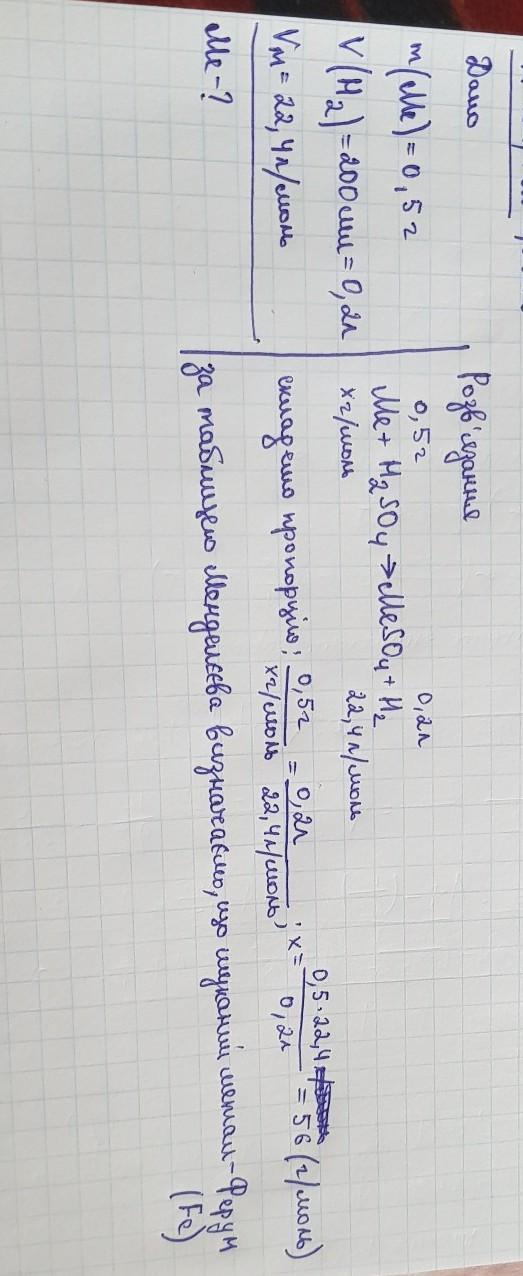 Дано
m(Me)=0,5г
V(H₂)=200мл=0,2л
Vм=22,4л/моль
Me-?
Розв'язання
0,5г 0,2л
Me+H₂SO₄→MeSO₄+H₂
xг/моль 22,4л/моль
складемо пропорцію; 0,5г/xг/моль = 0,2л/22,4л/моль; x=0,5·22,4/0,2л=56(г/моль)
за таблицею Менделєєва визначаємо, що шуканий метал-Ферум
(Fe)